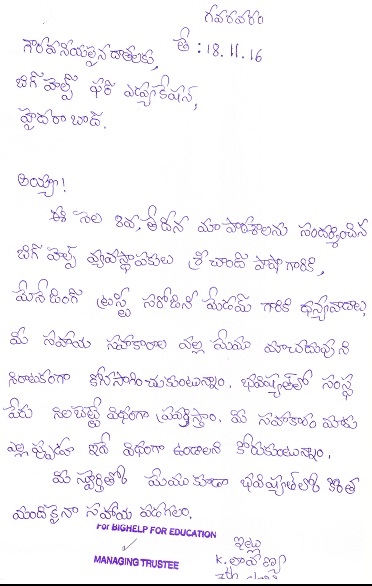 గవరవరం
తే : 18.11.16
గౌరవనీయులైన దాతలకు,
బిగ్ హెల్ప్ ఫర్ ఎడ్యుకేషన్,
హైదరాబాద్.
అయ్యా!
ఈ నెల తేదీన మా పాఠశాలను సందర్శించిన
బిగ్ హెల్ప్ వ్యవస్థాపకులు శ్రీ చాంద్ పాషా గారికి,
మేనేజింగ్ ట్రస్టీ సరోజిని మేడమ్ గారికి ధన్యవాదాలు,
మీ సహాయ సహకారాల వల్ల మేము మా చదువుని
నిరాటకంగా కొనసాగించుకుంటున్నాం. భవిష్యత్‌లో సంస్థ
పేరు నిలబెట్టే విధంగా ప్రవర్తిస్తాం. మీ సహకారం మాకు
ఎల్లప్పుడూ ఇదే విధంగా ఉండాలని కోరుకుంటున్నాం.
మీ స్ఫూర్తితో మేము కూడా భవిష్యత్‌లో కొంత
మందికైనా సహాయ పడగలం.
For BIGHELP FOR EDUCATION
MANAGING TRUSTEE
ఇట్లు
K. లావణ్య
7th